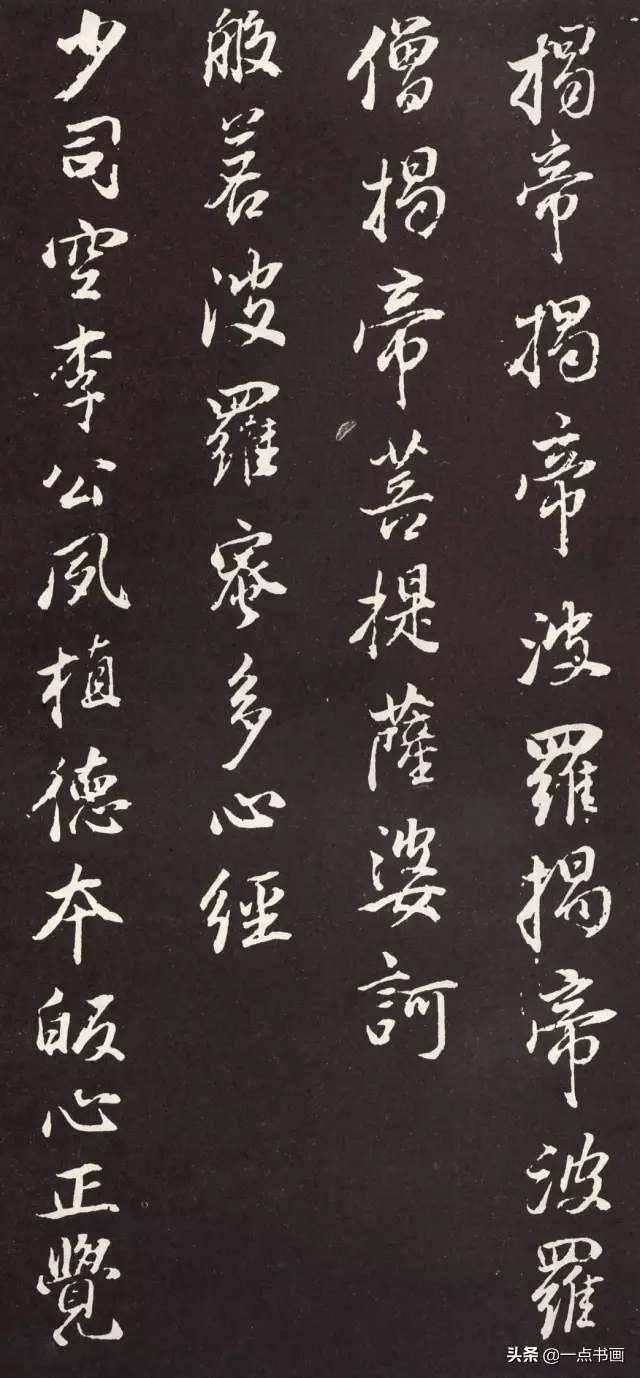 揭帝揭帝波羅揭帝波羅
僧揭帝菩提薩婆訶
般若波羅蜜多心經
少司空李公夙植德本皈心正覺
头条 @一点书画